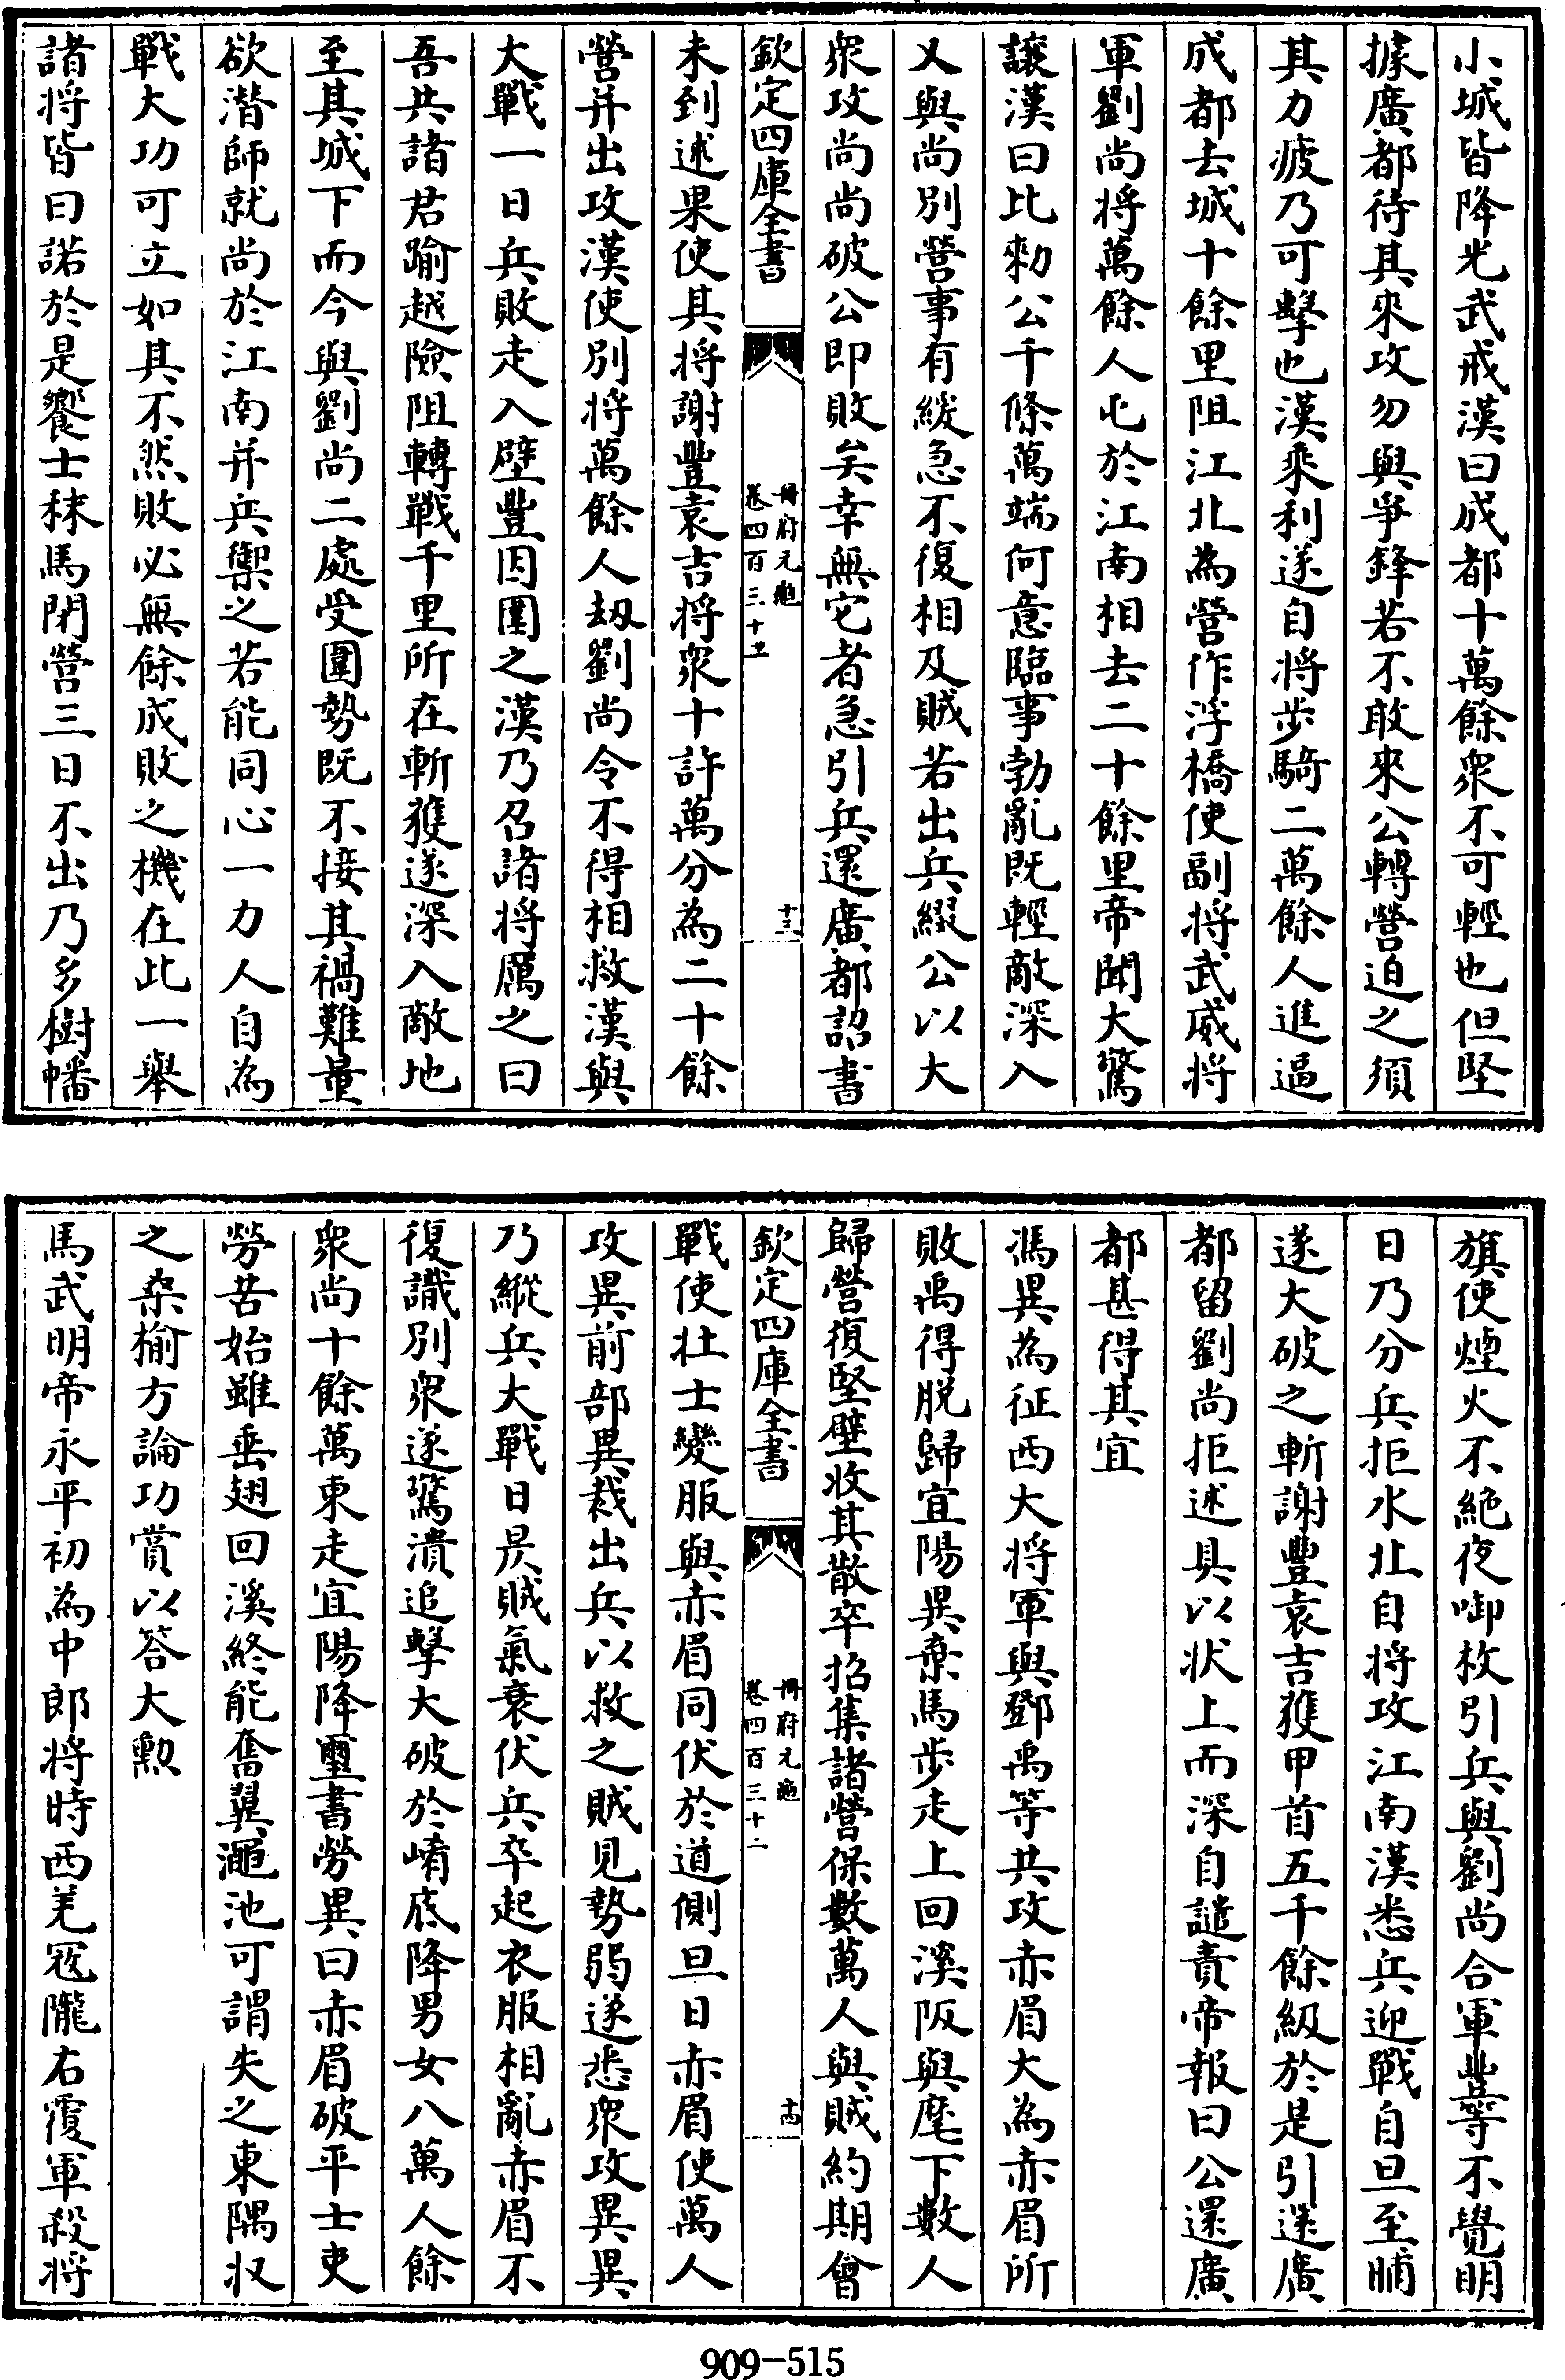 小城皆降光武戒漢曰成都十萬餘衆不可輕也但堅
據廣都待其來攻勿與爭鋒若不敢來公轉營迫之須
其力疲乃可擊也漢乘利遂自将步騎二萬餘人進逼
成都去城十餘里阻江北為營作浮橋使副将武威将
軍劉尚将萬餘人屯於江南相去二十餘里帝聞大驚
讓漢曰比勑公千條萬端何意臨事勃亂既輕敵深入
又與尚别營事有緩急不復相及賊若出兵綴公以大
衆攻尚尚破公即敗矣幸無它者急引兵還廣都詔書
欽定四庫全書
冊府元龜
卷四百三十二
十三
未到述果使其将謝豐袁吉将衆十許萬分為二十餘
營并出攻漢使别将萬餘人刼劉尚令不得相救漢與
大戰一日兵敗走入壁豐因圍之漢乃召諸将厲之曰
吾共諸君踰越險阻轉戰千里所在斬獲遂深入敵地
至其城下而今與劉尚二處受圍勢既不接其禍難量
欲潛師就尚於江南并兵禦之若能同心一力人自為
戰大功可立如其不然敗必無餘成敗之機在此一舉
諸将皆曰諾於是饗士秣馬閉營三日不出乃多樹幡
旗使煙火不絶夜啣枚引兵與劉尚合軍豐等不覺明
日乃分兵拒水北自将攻江南漢悉兵迎戰自旦至晡
遂大破之斬謝豐袁吉獲甲首五千餘級於是引還廣
都留劉尚拒述具以状上而深自譴責帝報曰公還廣
都甚得其宜
馮異為征西大将軍與鄧禹等共攻赤眉大為赤眉所
敗禹得脱歸宜陽異棄馬步走上回溪阪與麾下數人
歸營復堅壁收其散卒招集諸營保數萬人與賊約期會
欽定四庫全書
冊府元龜
卷四百三十二
十四
戰使壮士變服與赤眉同伏於道側旦日赤眉使萬人
攻異前部異裁出兵以救之賊見勢弱遂悉衆攻異異
乃縱兵大戰日昃賊氣衰伏兵卒起衣服相亂赤眉不
復識别衆遂驚潰追擊大破於崤底降男女八萬人餘
衆尚十餘萬東走宜陽降璽書勞異曰赤眉破平士吏
勞苦始雖垂翅回溪終能奮翼澠池可謂失之東隅収
之桑榆方論功賞以答大勲
馬武明帝永平初為中郎将時西羌冦隴右覆軍殺将
909-515